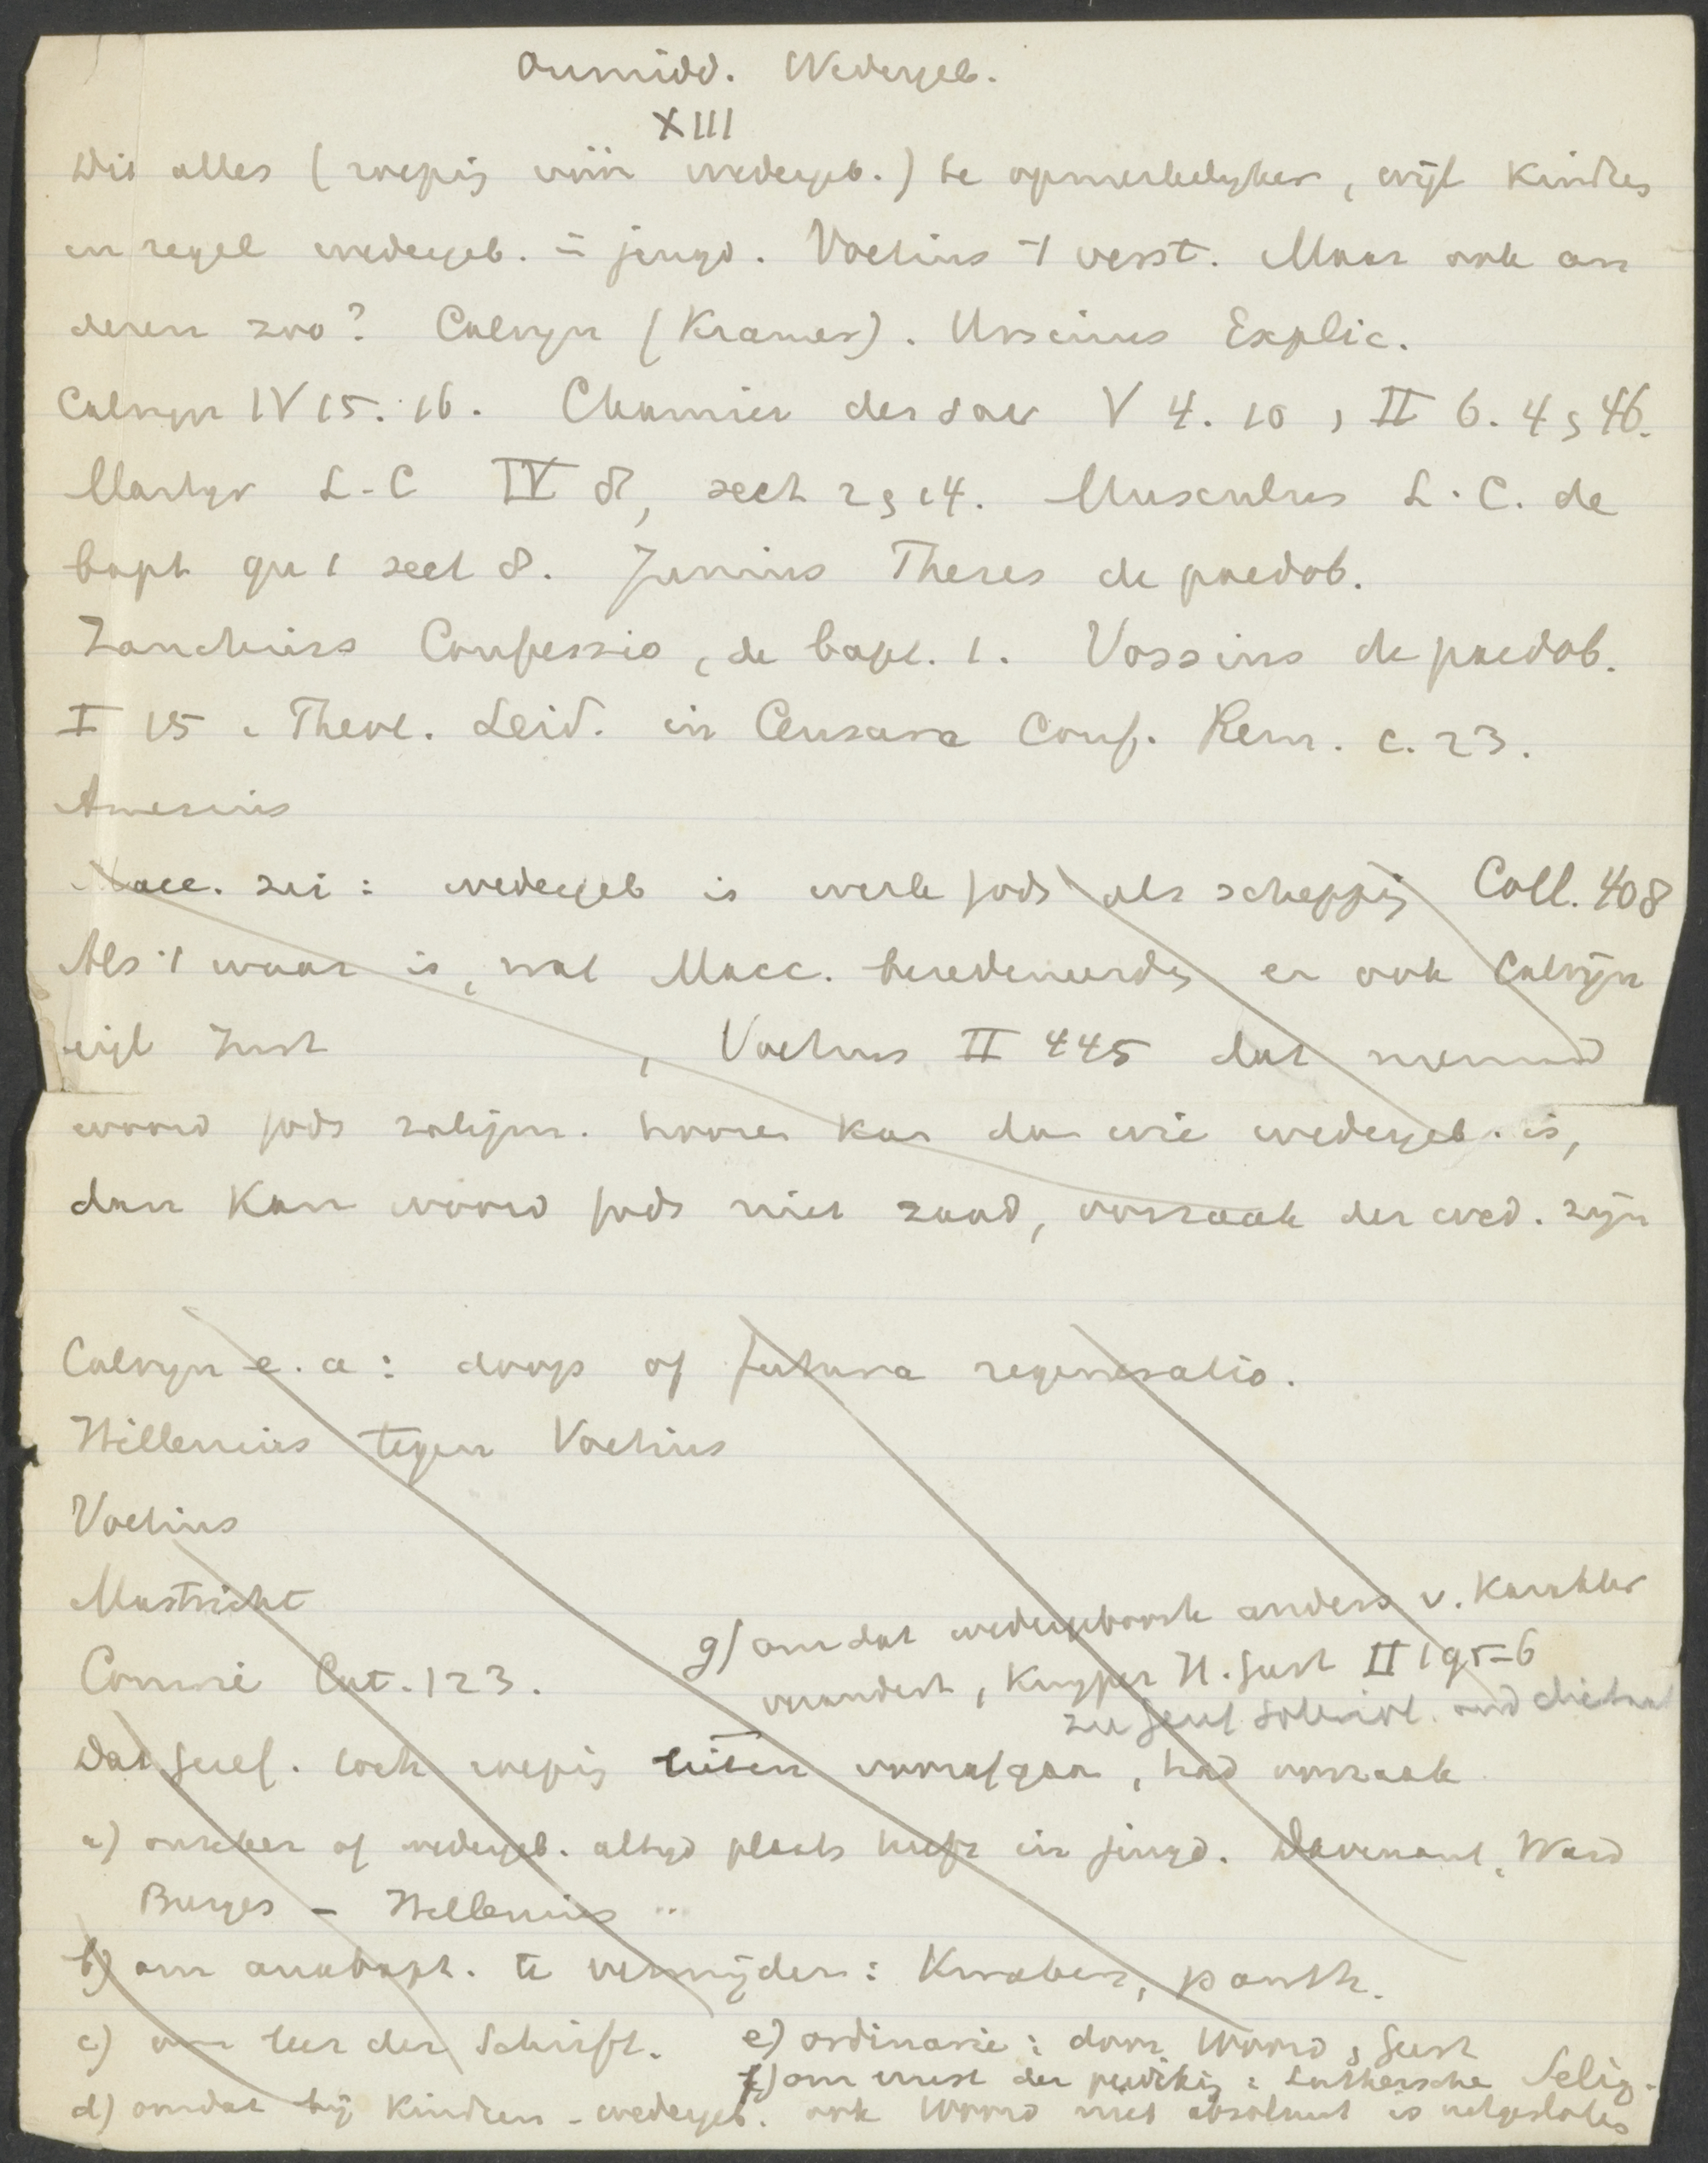 Onmidd. Wedergeb.
XIII
Dit alles (roeping vóór wedergeb.) te opmerkelyker, wijl kindren
in regel wedergeb. in jeugd. Voetius 't verst. Maar ook an
deren zoo? Calvyn (Kramer). Ursinus Explic.
Calvyn IV 15. 16. Chamier der sacr V 4. 10, II 6. 4 en 46.
Martyr L-C IV 8, sect 2 en 14. Musculus L.C. de
bapt qu 1 sect 8. Junius Theses de paedob.
Zanchius Confessio, de bapt. 1. Vossius de paedob.
I 15. Theol. Leid. in Censura Conf. Rem. c. 23.
Amesius
Macc. zei: wedergeb is werk Gods als schepping Coll. 408
Als 't waar is, wat Macc. beredeneerde, en ook Calvijn
, Voetius II 445 dat niemand
woord Gods zaligm. hooren kan dan wie wedergeb. is,
dan kan woord Gods niet zaad, oorzaak der wed. zijn
Calvyn e.a: doop of futura regeneratio.
Willemius tegen Voetius
Voetius
Mastricht
Comrie Cat. 123.
g) omdat wedergeboorte anders v. karakter
verandert, Kuyper H. Geest II 195-6
Dat Geref. toch roeping lieten voorafgaan, had oorzaak
a) onzeker of wedergeb. altyd plaats heeft in jeugd. Davenant, Ward
Burges - Willemius
b) om anabapt. te vermijden: Knoben, panth.
c) om leer der Schrift.
d) omdat bij kindren - wedergeb. ook woord niet absoluut is uitgesloten
e) ordinarie: door woord en Geest
f) om ernst der prediking: Luthersche Selig.